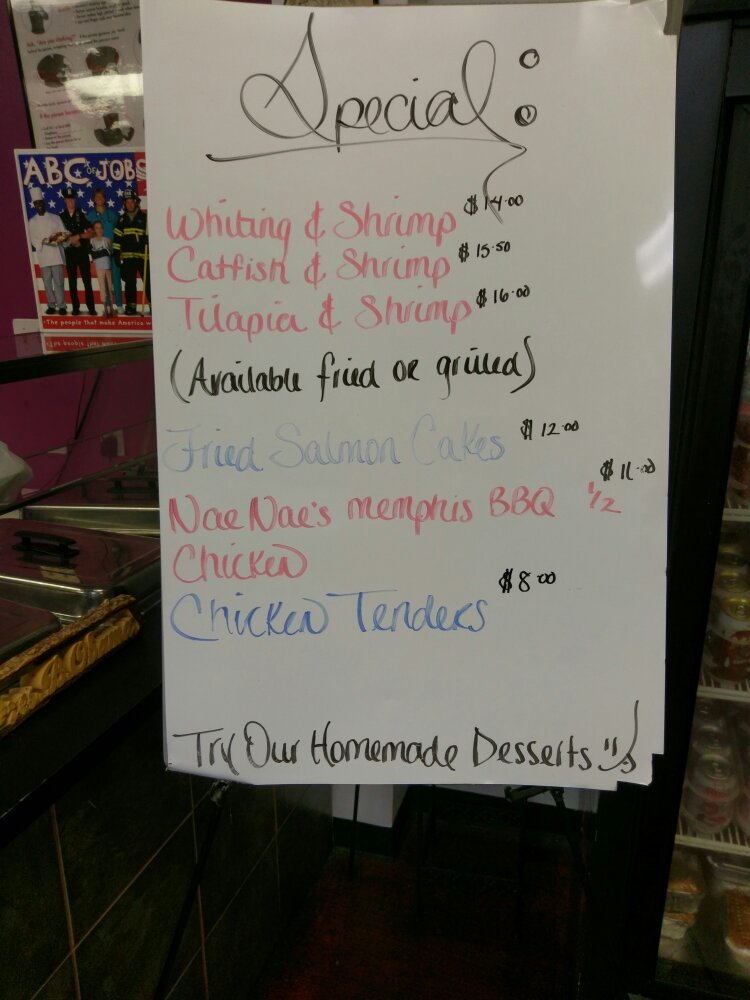 Special:
Whiting & Shrimp $14.00
Catfish & Shrimp $15.50
Tilapia & Shrimp $16.00
(Available fried or grilled)
Fried Salmon Cakes $12.00
$11.00
Nae Nae's memphis BBQ 1/2
Chicken
Chicken Tenders $8.00
Try Our Homemade Desserts
ABC OF JOBS
The people that make America w